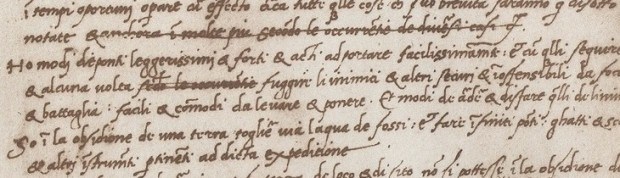 i tempi oportuni operare al effecto di ca tutti qlle cose che sub brevita saranno qui di sotto
notate & anchora i molte piu secodo le occurrentie de diuersi casi
Ho modi de ponti leggerissimi & forti & acti ad portare facilissimamte: & cu qlli seguire
& alcuna uolta secdo le occurentie fuggir li inimici & altri securi & inoffensibili da foco
& battaglia: facili & comodi da leuare & ponere. Et modi de arder & disfare qlli de linimi
So i la obsidione de una terra toglier uia laqua de fossi: & fare ifiniti ponti ghatti & sc
& altri istrumti ptinenti ad dicta expeditione
de loco & di sito no si pottesse i la obsidione de